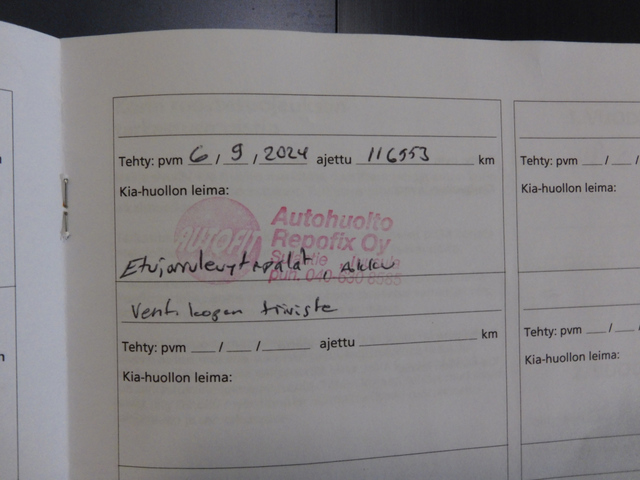 Tehty: pvm 6 / 9 / 2024 ajettu 116553 km
Kia-huollon leima:
AUTOFIT
Autohuolto
Repofix Oy
puh. 040-630 8585
Etujarrulevyt+palat,
Vent. kopan tiiviste
Tehty: pvm / / ajettu km
Kia-huollon leima:
Tehty: pvm / /
Kia-huollon leima:
Tehty: pvm / /
Kia-huollon leima: